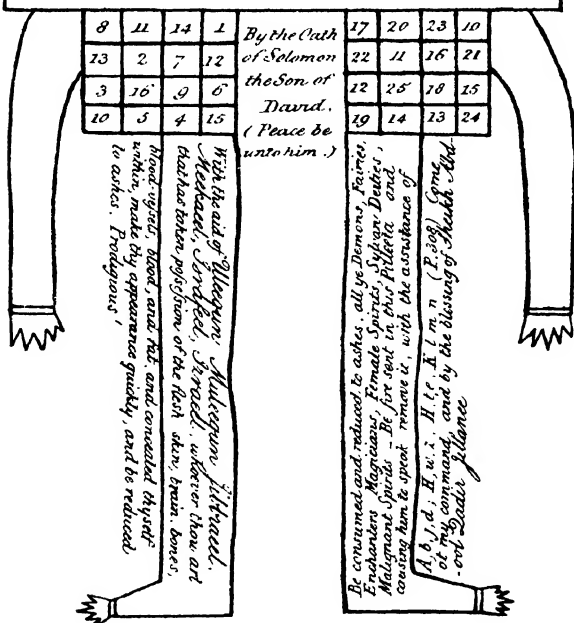 8 11 14 1
13 2 7 12
3 16 9 6
10 5 4 15
By the Oath
of Solomon
the Son of
David.
(Peace be
unto him.)
17 20 23 10
22 11 16 21
12 25 18 15
19 14 13 24
With the aid of Uleequn Muleequn Jibraeel.
Meekaeel, Israfeel, Izraeel, whoever thou art
that has taken possession of the flesh skin, brain, bones,
blood vessels, blood, and fat, and concealed thyself
within, make thy appearance quickly, and be reduced
to ashes. Prodigious!
Be consumed and reduced to ashes, all ye Demons, Fairies,
Enchanters Magicians, Female Spirits, Sylvan Deities,
Malignant Spirits _ Be fire sent in this, Pilleeta and
causing him to speak remove it, with the assistance of
A, b, j, d; H, w, z. H. te, K l m n (P. 308) Come
at my command, and by the blessing of Sheikh Abd-
-ool Qadir Jillanee